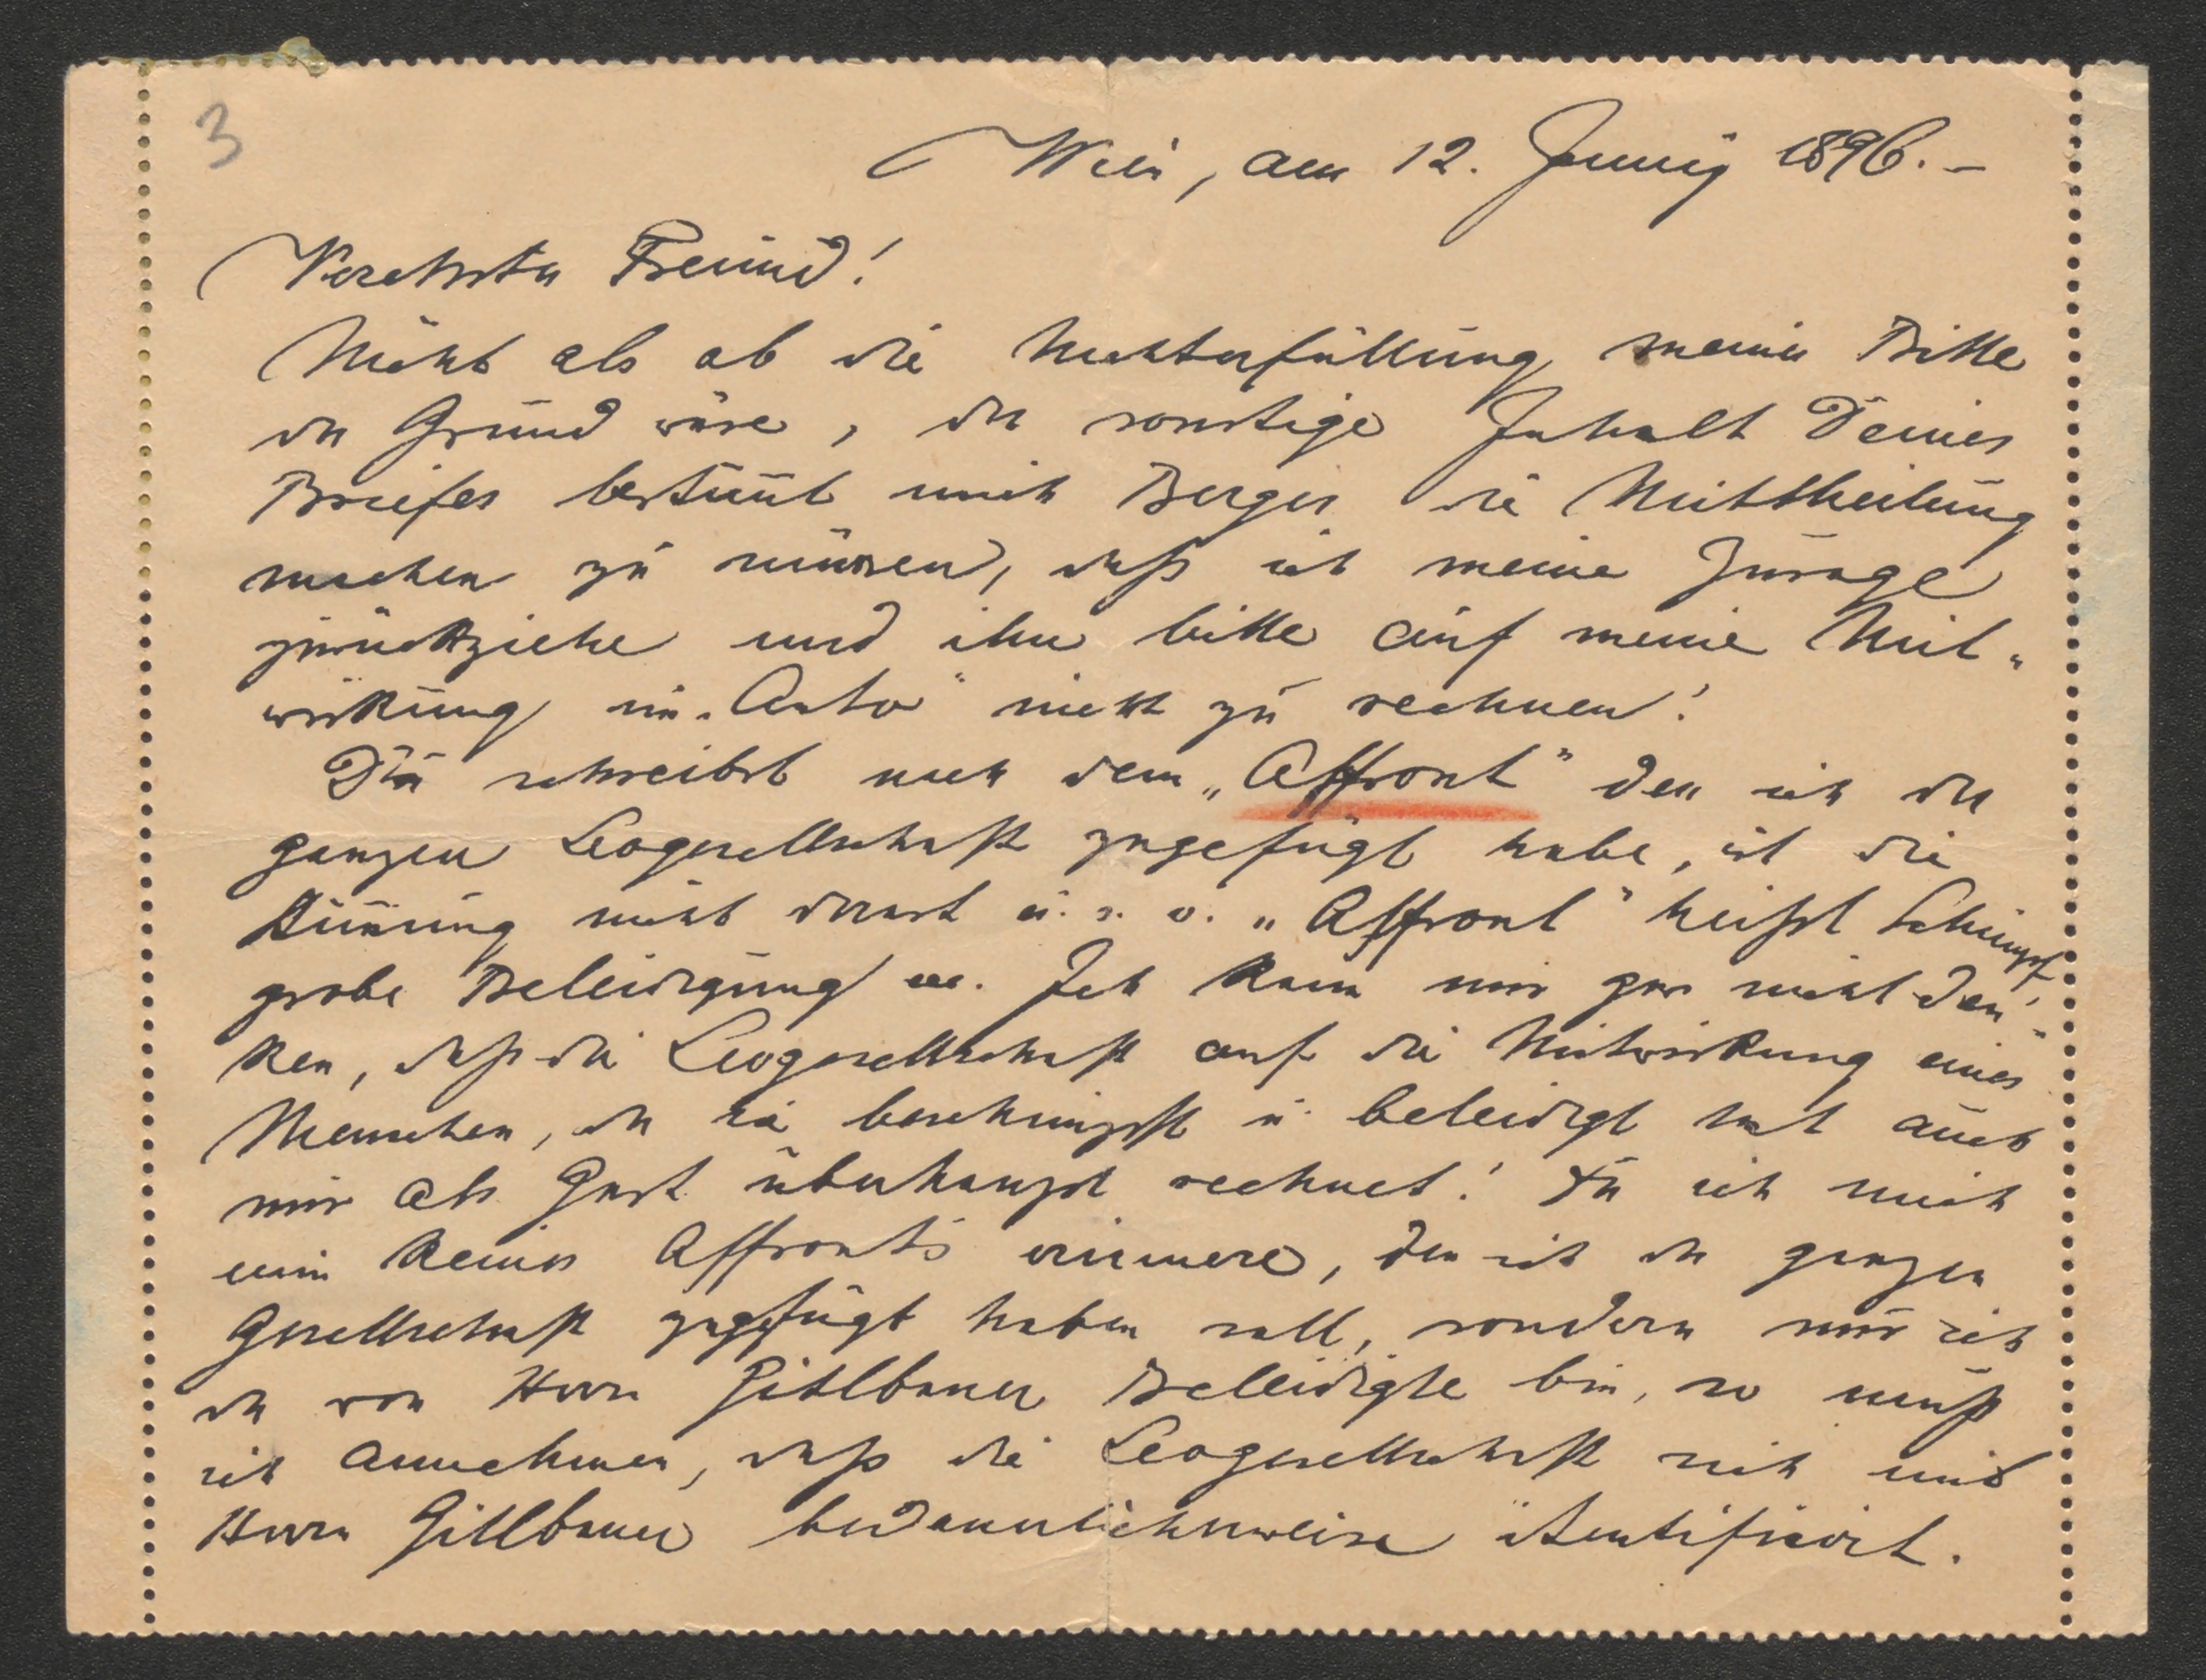 3
Wien, am 12. Junij 1896. –
Verehrter Freund!
Nicht als ob die Nichterfüllung meiner Bitte
der Grund wäre, der sonstige Inhalt Deines
Briefes bestim̄t mich Berger die Mittheilung
machen zu müssen, daß ich meine Zusage
zurückziehe und ihn bitte auf meine Mit„
wirkung im „Auto“ nicht zu rechnen!
Du schreibst nach dem „Affront“ den ich der
ganzen Leogesellschaft zugefügt habe, ist die
Stim̄ung nicht derart u. s. w. „Affront“ heißt Schimpf,
grobe Beleidigung etc. Ich kann mir gar nicht den„
ken, daß die Leogesellschaft auf die Mitwirkung eines
Menschen, der sie beschimpft u beleidigt hat auch
nur als Gast überhaupt rechnet! Da ich mich
nun keines Affronts erinnere, den ich der ganzen
Gesellschaft zugefügt haben soll, sondern nur ich
der von Herrn Gitlbauer Beleidigte bin, so muß
ich annehmen, daß die Leogesellschaft sich mit
Herrn Gitlbauer bedauerlicherweise identificirt.